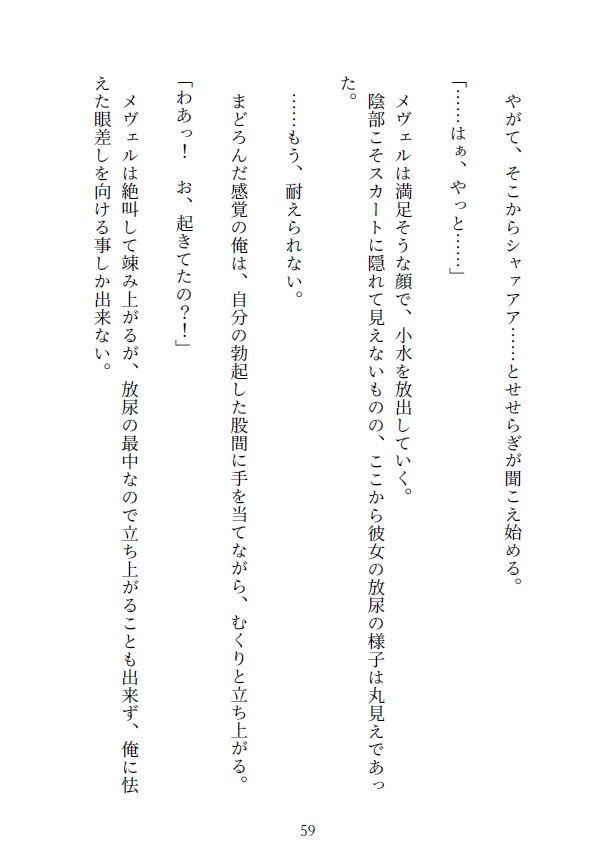 やがて、そこからシャァアア……とせせらぎが聞こえ始める。
「……はぁ、やっと……」
メヴェルは満足そうな顔で、小水を放出していく。
陰部こそスカートに隠れて見えないものの、ここから彼女の放尿の様子は丸見えであっ
た。
……もう、耐えられない。
まどろんだ感覚の俺は、自分の勃起した股間に手を当てながら、むくりと立ち上がる。
「わあっ！　お、起きてたの？！」
メヴェルは絶叫して竦み上がるが、放尿の最中なので立ち上がることも出来ず、俺に怯
えた眼差しを向ける事しか出来ない。
59